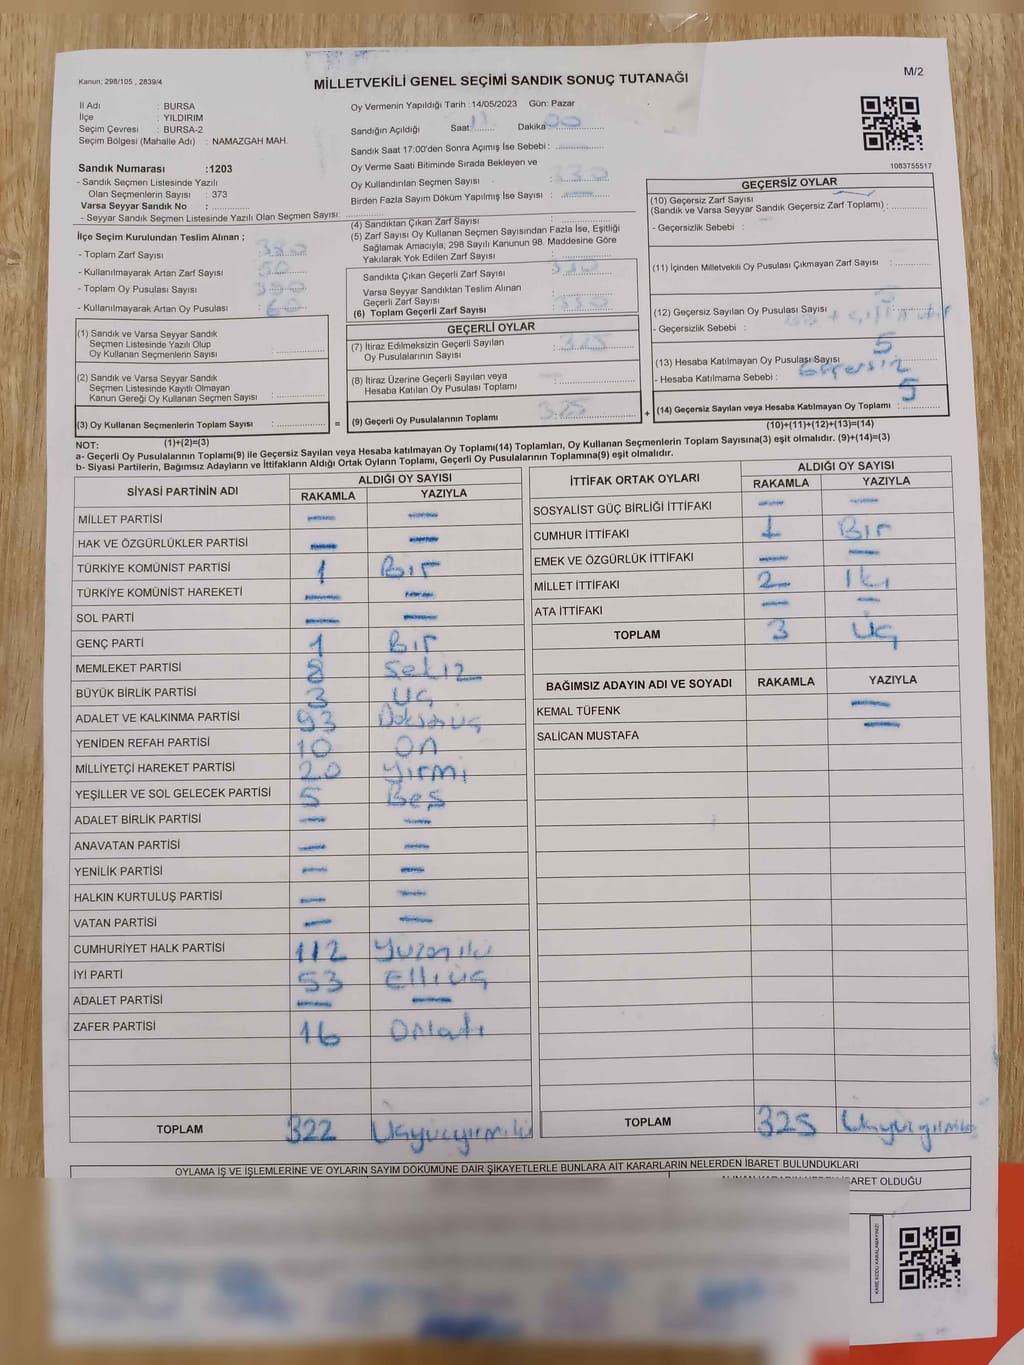 Kanun; 298/105 , 2839/4
MİLLETVEKİLİ GENEL SEÇİMİ SANDIK SONUÇ TUTANAĞI
M/2
İl Adı : BURSA
İlçe : YILDIRIM
Seçim Çevresi : BURSA-2
Seçim Bölgesi (Mahalle Adı) : NAMAZGAH MAH.
Sandık Numarası :1203
- Sandık Seçmen Listesinde Yazılı
Olan Seçmenlerin Sayısı : 373
Varsa Seyyar Sandık No :
- Seyyar Sandık Seçmen Listesinde Yazılı Olan Seçmen Sayısı:
Oy Vermenin Yapıldığı Tarih :14/05/2023 Gün: Pazar
Sandığın Açıldığı Saat: Dakika 00
Sandık Saat 17:00'den Sonra Açılmış İse Sebebi : —
Oy Verme Saati Bitiminde Sırada Bekleyen ve
Oy Kullandırılan Seçmen Sayısı : 330
Birden Fazla Sayım Döküm Yapılmış İse Sayısı : —
1083755517
İlçe Seçim Kurulundan Teslim Alınan ;
- Toplam Zarf Sayısı : 380
- Kullanılmayarak Artan Zarf Sayısı : 50
- Toplam Oy Pusulası Sayısı : 390
- Kullanılmayarak Artan Oy Pusulası : 60
(1) Sandık ve Varsa Seyyar Sandık
Seçmen Listesinde Yazılı Olup
Oy Kullanan Seçmenlerin Sayısı :
(2) Sandık ve Varsa Seyyar Sandık
Seçmen Listesinde Kayıtlı Olmayan
Kanun Gereği Oy Kullanan Seçmen Sayısı :
(3) Oy Kullanan Seçmenlerin Toplam Sayısı :
(1)+(2)=(3)
(4) Sandıktan Çıkan Zarf Sayısı :
(5) Zarf Sayısı Oy Kullanan Seçmen Sayısından Fazla İse, Eşitliği
Sağlamak Amacıyla; 298 Sayılı Kanunun 98. Maddesine Göre
Yakılarak Yok Edilen Zarf Sayısı :
Sandıkta Çıkan Geçerli Zarf Sayısı : 330
Varsa Seyyar Sandıktan Teslim Alınan
Geçerli Zarf Sayısı
(6) Toplam Geçerli Zarf Sayısı : 330
GEÇERLİ OYLAR
(7) İtiraz Edilmeksizin Geçerli Sayılan
Oy Pusulalarının Sayısı : 325
(8) İtiraz Üzerine Geçerli Sayılan veya
Hesaba Katılan Oy Pusulası Toplamı :
= (9) Geçerli Oy Pusulalarının Toplamı : 325 +
GEÇERSİZ OYLAR
(10) Geçersiz Zarf Sayısı
(Sandık ve Varsa Seyyar Sandık Geçersiz Zarf Toplamı) :
- Geçersizlik Sebebi :
(11) İçinden Milletvekili Oy Pusulası Çıkmayan Zarf Sayısı :
(12) Geçersiz Sayılan Oy Pusulası Sayısı : 5
- Geçersizlik Sebebi :
(13) Hesaba Katılmayan Oy Pusulası Sayısı : 5
- Hesaba Katılmama Sebebi : Geçersiz
(14) Geçersiz Sayılan veya Hesaba Katılmayan Oy Toplamı : 5
(10)+(11)+(12)+(13)=(14)
NOT:
a- Geçerli Oy Pusulalarının Toplamı(9) ile Geçersiz Sayılan veya Hesaba katılmayan Oy Toplamı(14) Toplamları, Oy Kullanan Seçmenlerin Toplam Sayısına(3) eşit olmalıdır. (9)+(14)=(3)
b- Siyasi Partilerin, Bağımsız Adayların ve İttifakların Aldığı Ortak Oyların Toplamı, Geçerli Oy Pusulalarının Toplamına(9) eşit olmalıdır.
SİYASİ PARTİNİN ADI ALDIĞI OY SAYISI
RAKAMLA YAZIYLA
MİLLET PARTİSİ — —
HAK VE ÖZGÜRLÜKLER PARTİSİ — —
TÜRKİYE KOMÜNİST PARTİSİ 1 Bir
TÜRKİYE KOMÜNİST HAREKETİ — —
SOL PARTİ — —
GENÇ PARTİ 1 Bir
MEMLEKET PARTİSİ 8 Sekiz
BÜYÜK BİRLİK PARTİSİ 3 Üç
ADALET VE KALKINMA PARTİSİ 93 Doksanüç
YENİDEN REFAH PARTİSİ 10 On
MİLLİYETÇİ HAREKET PARTİSİ 20 Yirmi
YEŞİLLER VE SOL GELECEK PARTİSİ 5 Beş
ADALET BİRLİK PARTİSİ — —
ANAVATAN PARTİSİ — —
YENİLİK PARTİSİ — —
HALKIN KURTULUŞ PARTİSİ — —
VATAN PARTİSİ — —
CUMHURİYET HALK PARTİSİ 112 Yüzoniki
İYİ PARTİ 53 Elliüç
ADALET PARTİSİ — —
ZAFER PARTİSİ 16 Onaltı
TOPLAM 322 Üçyüzyirmiiki
İTTİFAK ORTAK OYLARI ALDIĞI OY SAYISI
RAKAMLA YAZIYLA
SOSYALİST GÜÇ BİRLİĞİ İTTİFAKI — —
CUMHUR İTTİFAKI 1 Bir
EMEK VE ÖZGÜRLÜK İTTİFAKI — —
MİLLET İTTİFAKI 2 İki
ATA İTTİFAKI — —
TOPLAM 3 Üç
BAĞIMSIZ ADAYIN ADI VE SOYADI RAKAMLA YAZIYLA
KEMAL TÜFENK —
SALİCAN MUSTAFA —
TOPLAM 325
OYLAMA İŞ VE İŞLEMLERİNE VE OYLARIN SAYIM DÖKÜMÜNE DAİR ŞİKAYETLERLE BUNLARA AİT KARARLARIN NELERDEN İBARET BULUNDUKLARI